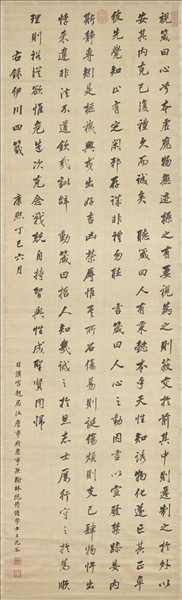 視箴曰心兮本虛應物無迹操之有要視為之則蔽交於前其中則遷制之於外以
安其內克己復禮久而誠矣 聽箴曰人有秉彝本乎天性知誘物化遂亡其正卓
彼先覺知止有定閑邪存誠非禮勿聽 言箴曰人心之動因言以宣發禁躁妄內
斯靜專矧是樞機興戎出好吉凶榮辱惟其所召傷易則誕傷煩則支己肆物忤出
悖來違非法不道欽哉訓辭 動箴曰哲人知幾誠之於思志士厲行守之於為順
理則裕從欲惟危造次克念戰兢自持習與性成聖賢同歸
右錄伊川四箴
康熙丁巳六月
日講官起居注詹事府詹事兼翰林院侍讀學士臣沈荃